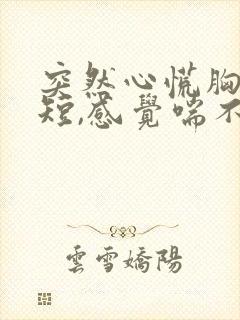 突然心慌胸
短,感覺喘不
雲雪嬌陽